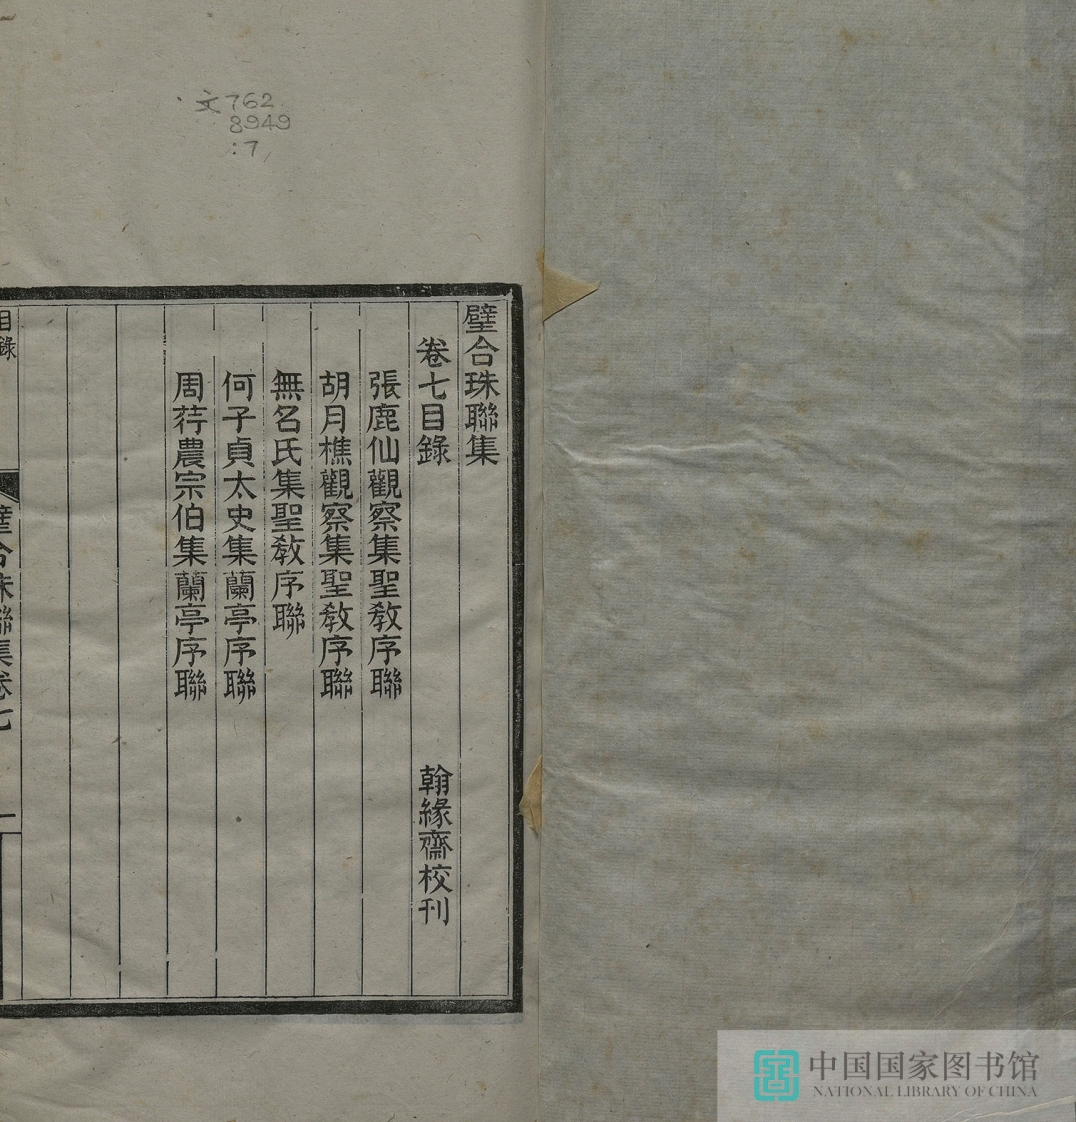 文762
8949
:7
璧合珠聯集
卷七目錄
翰緣齋校刊
張鹿仙觀察集聖敎序聯
胡月樵觀察集聖敎序聯
無名氏集聖敎序聯
何子貞太史集蘭亭序聯
周荇農宗伯集蘭亭序聯
目錄
璧合珠聯集卷七
一
中国国家图书馆
NATIONAL LIBRARY OF CHINA